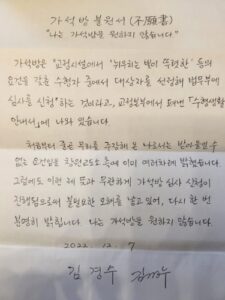 가석방 불원서 (不願書)
"나는 가석방을 원하지 않습니다"
가석방은 "교정시설에서 '뉘우치는 빛이 뚜렷한' 등의
요건을 갖춘 수형자 중에서 대상자를 선정해 법무부에
심사를 신청"하는 것이라고, 교정본부에서 펴낸 「수형생활
안내서」에 나와 있습니다.
처음부터 줄곧 무죄를 주장해 온 나로서는 받아들일 수
없는 요건임을 창원교도소 측에 이미 여러차례 밝혔습니다.
그럼에도 이런 제 뜻과 무관하게 가석방 심사 신청이
진행됨으로써 불필요한 오해를 낳고 있어, 다시 한 번
분명히 밝힙니다. 나는 가석방을 원하지 않습니다.
2022. 12. 7
김 경 수